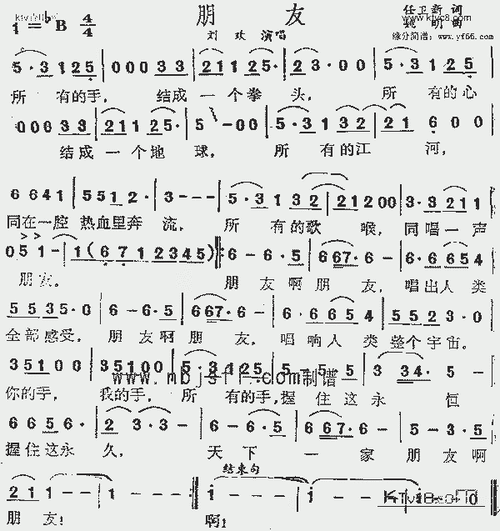 朋 友
任卫新 词
刘 欢 演唱
姚 明 曲
缘分简谱: www.yf66.com
i = ♭B 4/4
5·3 1 2 5 | 0 0 0 3 3 | 2 1 1 2 5· | 2 3· 0 0 | 5·3 1 2 5· |
所 有的手, 结成 一 个 拳 头, 所 有的心
0 0 0 3 3 | 2 1 1 2 5· | 5 - 0 0 | 5·3 1 3 2 | 2 1 6 0 0 |
结成 一 个 地 球, 所 有的江 河,
6 6 4 1 | 5 5 1 2· | 3 - - - | 5·3 1 3 2 | 2 1 2 0 0 | 3·3 2 1 1 |
同在一腔 热血里奔 流, 所 有的歌 喉, 同唱一声
0 5 1 - | 1 ( 6 7 1 2 3 4 5 ) ‖: 6 - 6·5 | 6 6 7·6· | 6·6 6 5 4 |
朋友。 朋 友啊朋 友, 唱出人类
5 5 3 5·0 | 6 - 6·5 | 6 6 7·6· | 6·6 6 5 4 | 5 5 2 3·0 |
全部感受。 朋 友啊朋 友, 唱响人 类 整个宇宙。
3 5 1 0 0 | 3 5 1 0 0 | 5·3 1 2 5· | 5 5 1 5· | 3 3 4· 5 |
你的手, 我的手, 所 有的手,握 住 这永 恒
www.mbjsfl.com制谱
6 6 5 6· | 2 3 3 - | 2 - 2·3 | 5 - 6·5 | 6 6 7·6 | 5 - 3·5 |
握住这永 久, 天 下 一 家 朋 友 啊
结束句
2 1 1 - - | 1 - - - :‖ 1 - - - | i - - - | i - - 0 ‖
朋 友! 啊!